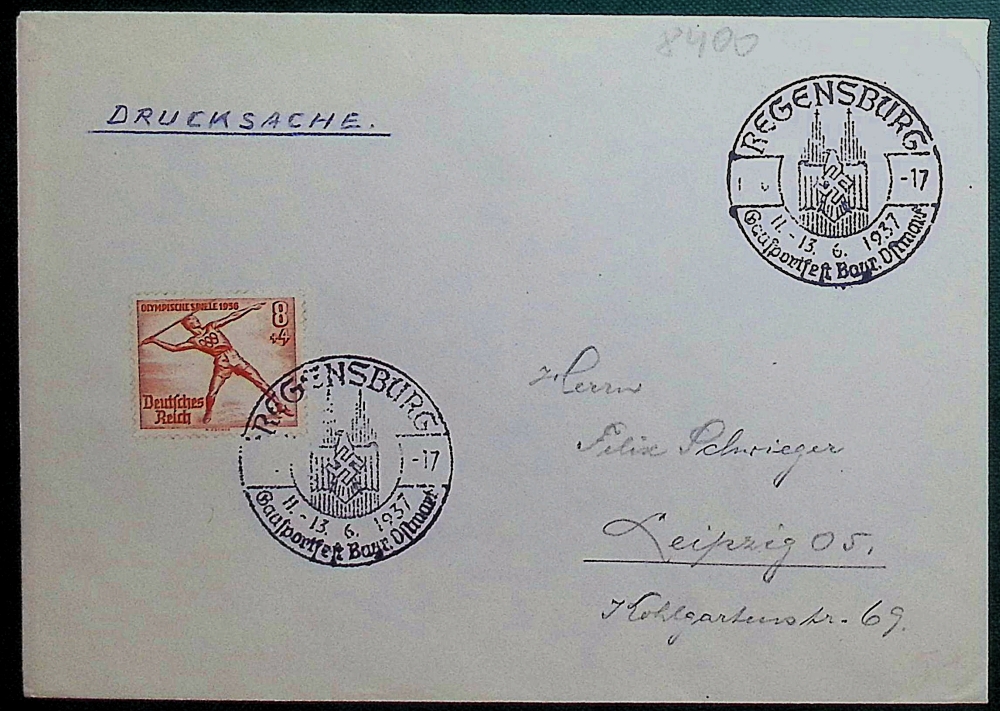 8400
DRUCKSACHE.
REGENSBURG
-17
11.-13. 6. 1937
Gausportfest Bayr. Ostmark
OLYMPISCHE SPIELE 1936
8
+4
Deutsches
Reich
REGENSBURG
-17
11.-13. 6. 1937
Gausportfest Bayr. Ostmark
Herrn
Felix Schwieger
Leipzig O5.
Kohlgartenstr. 69.